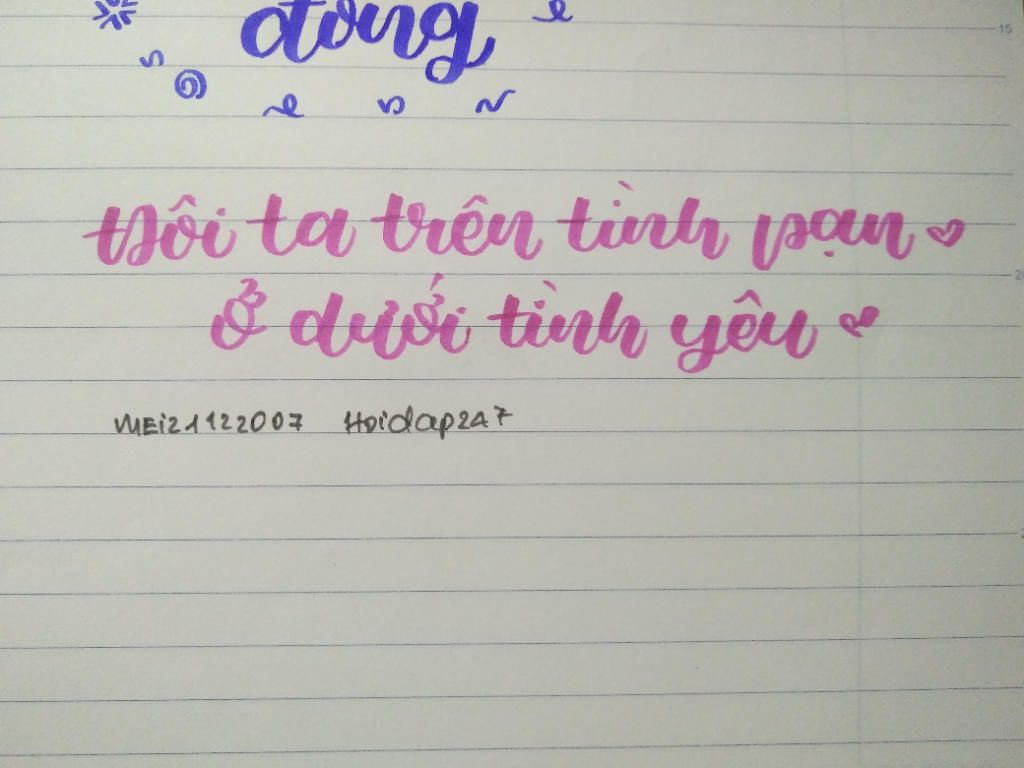 15
đông
Đôi ta trên tình bạn
ở dưới tình yêu
MEi21122007 Hoidap247